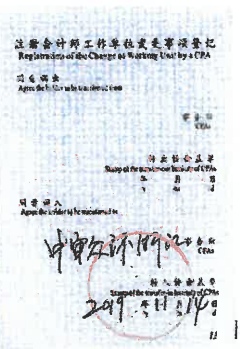 注册会计师工作单位变更事项登记
Registration of the Change of Working Unit by a CPA
同意调出
Agree the holder to be transferred from
事务所
CPAs
转出协会盖章
Stamp of the transfer-out Institute of CPAs
年 月 日
同意调入
Agree the holder to be transferred to
中审众环
事务所
CPAs
转入协会盖章
Stamp of the transfer-in Institute of CPAs
2019年11月14日
11